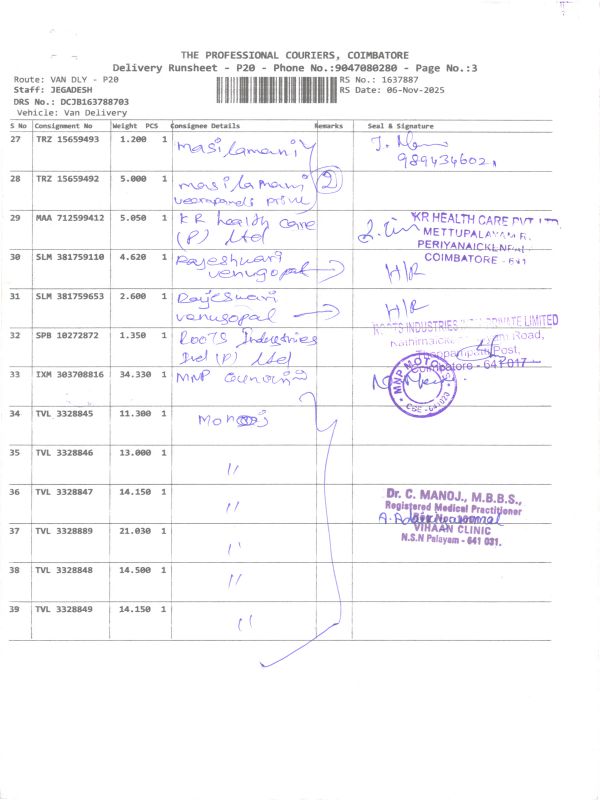 THE PROFESSIONAL COURIERS, COIMBATORE
Delivery Runsheet - P20 - Phone No.:9047080280 - Page No.:3
Route: VAN DLY - P20 RS No.: 1637887
Staff: JEGADESH RS Date: 06-Nov-2025
DRS No.: DCJB163788703
Vehicle: Van Delivery
S No Consignment No Weight PCS Consignee Details Remarks Seal & Signature
27 TRZ 15659493 1.200 1 Masilamani
28 TRZ 15659492 5.000 1 masilamani 2
29 MAA 712599412 5.050 1 KR health care
(P) Ltd
KR HEALTH CARE PVT LTD
METTUPALAYAM R
PERIYANAICKENPAL
COIMBATORE - 641
30 SLM 381759110 4.620 1 Rajeshwari
venugopal H/R
31 SLM 381759653 2.600 1 Rajeswari
venugopal H/R
32 SPB 10272872 1.350 1 Roots Industries
Ind (P) Ltd
ROOTS INDUSTRIES PRIVATE LIMITED
Road,
Thoppampatti Post,
Coimbatore - 641 017
33 IXM 303708816 34.330 1 MNP
MNP MOTORS
CBE - 641 020
34 TVL 3328845 11.300 1 Manoj
35 TVL 3328846 13.000 1 "
36 TVL 3328847 14.150 1 "
Dr. C. MANOJ., M.B.B.S.,
Registered Medical Practitioner
VIHAAN CLINIC
N.S.N Palayam - 641 031.
37 TVL 3328889 21.030 1 "
38 TVL 3328848 14.500 1 "
39 TVL 3328849 14.150 1 "